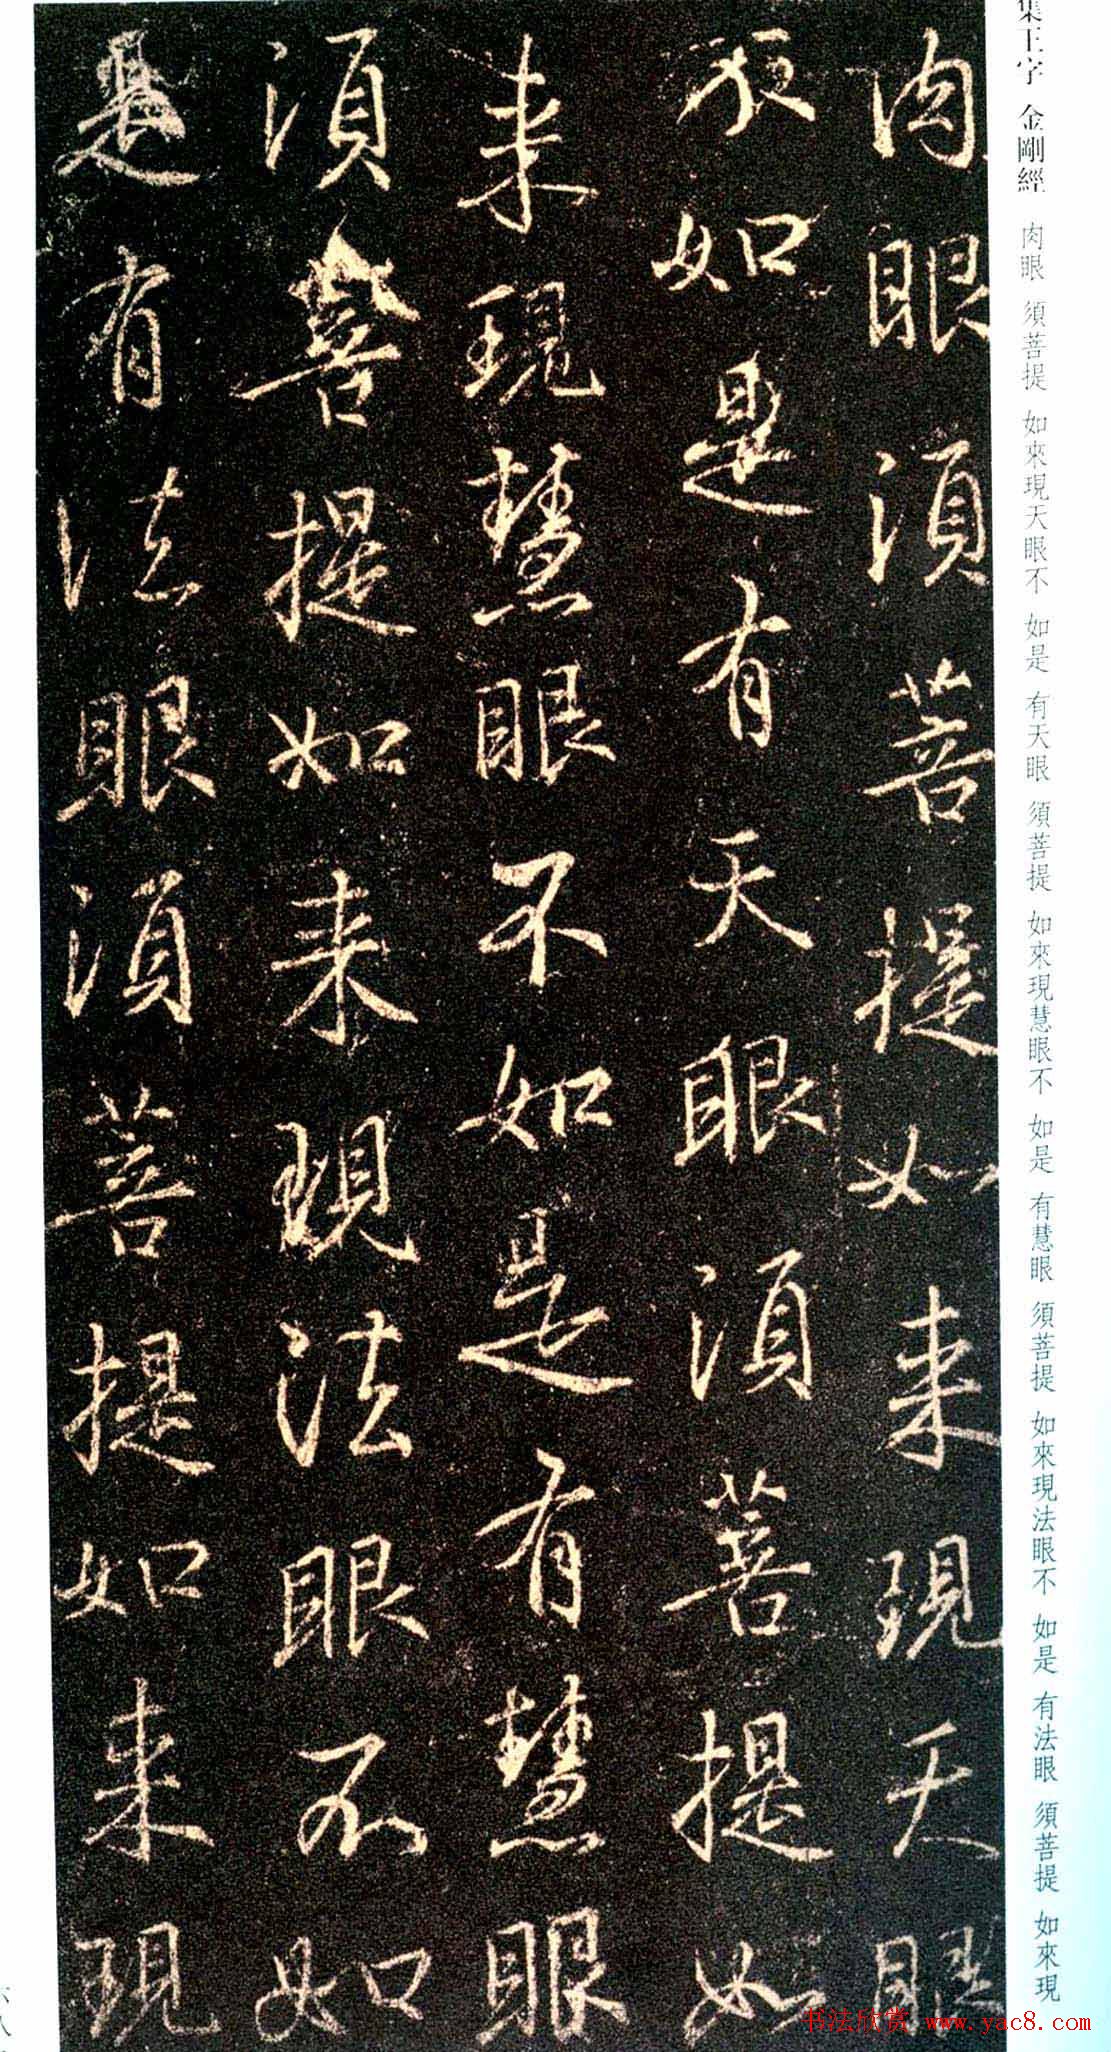 集王字 金剛經 肉眼 須菩提 如來現天眼不 如是 有天眼 須菩提 如來現慧眼不 如是 有慧眼 須菩提 如來現法眼不 如是 有法眼 須菩提 如來現
肉眼須菩提如来現天眼
不如是有天眼須菩提如
来現慧眼不如是有慧眼
須菩提如来現法眼不如
是有法眼須菩提如来現
书法欣赏 www.yac8.com